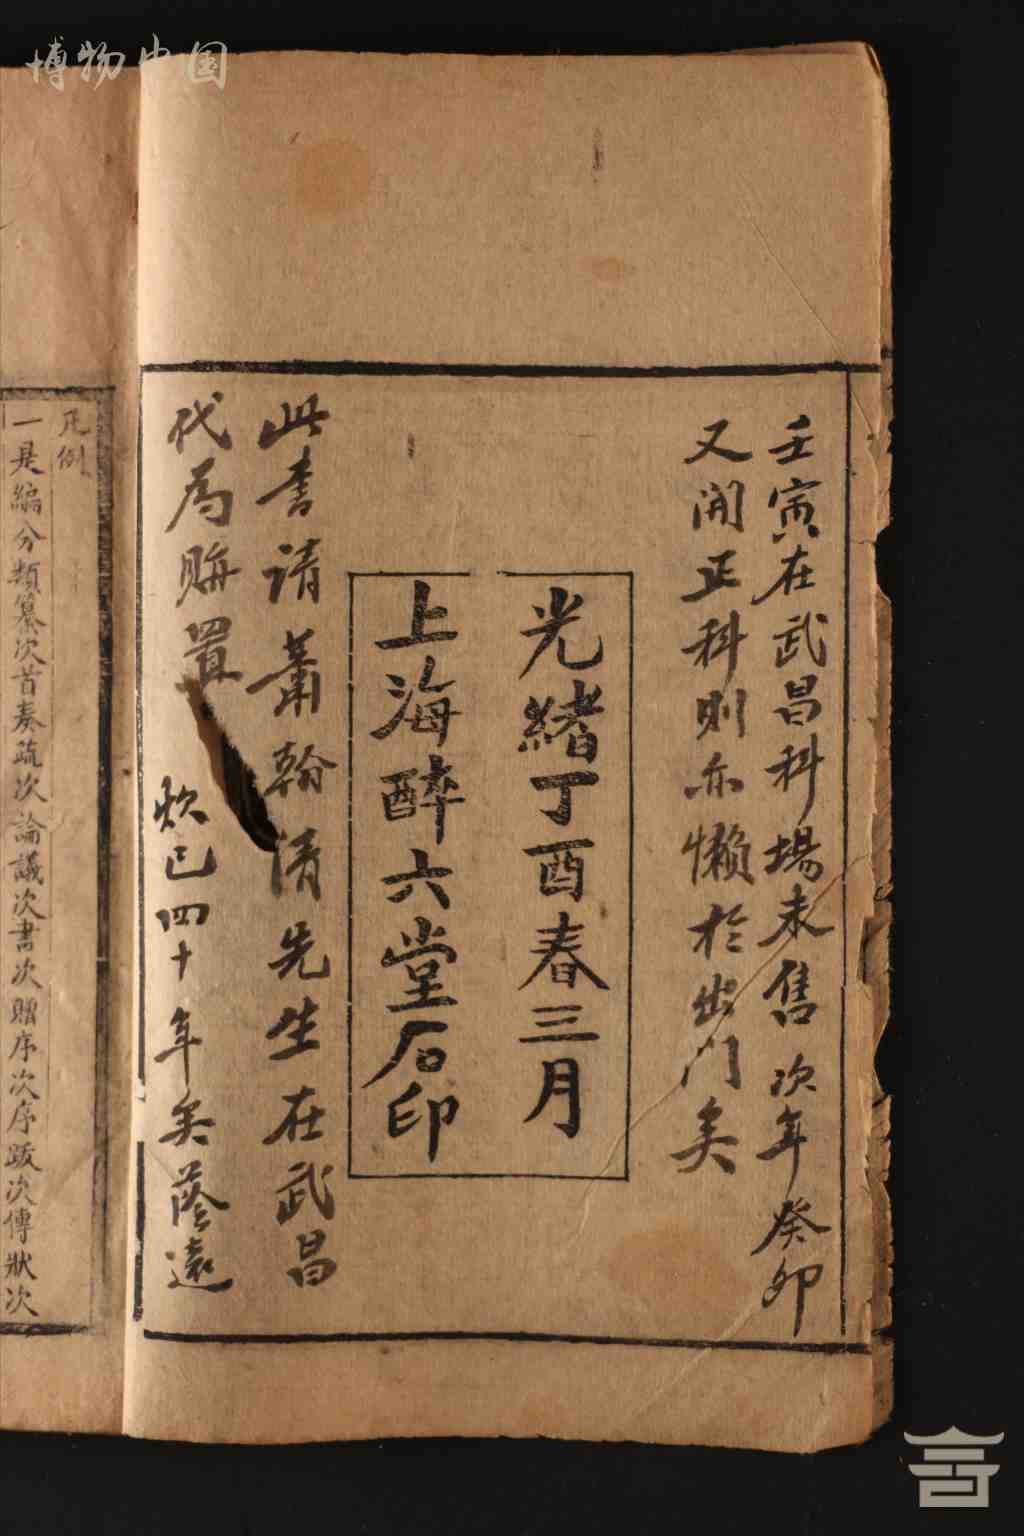 博物中国
壬寅在武昌科場未售次年癸卯
又開正科則亦懒於出门矣
光緒丁酉春三月
上海醉六堂石印
此書请蕭翰清先生在武昌
代為購置
欤已四十年矣蔭遠
凡例
一是編分類纂次首奏疏次論議次書次贈序次序跋次傳狀次